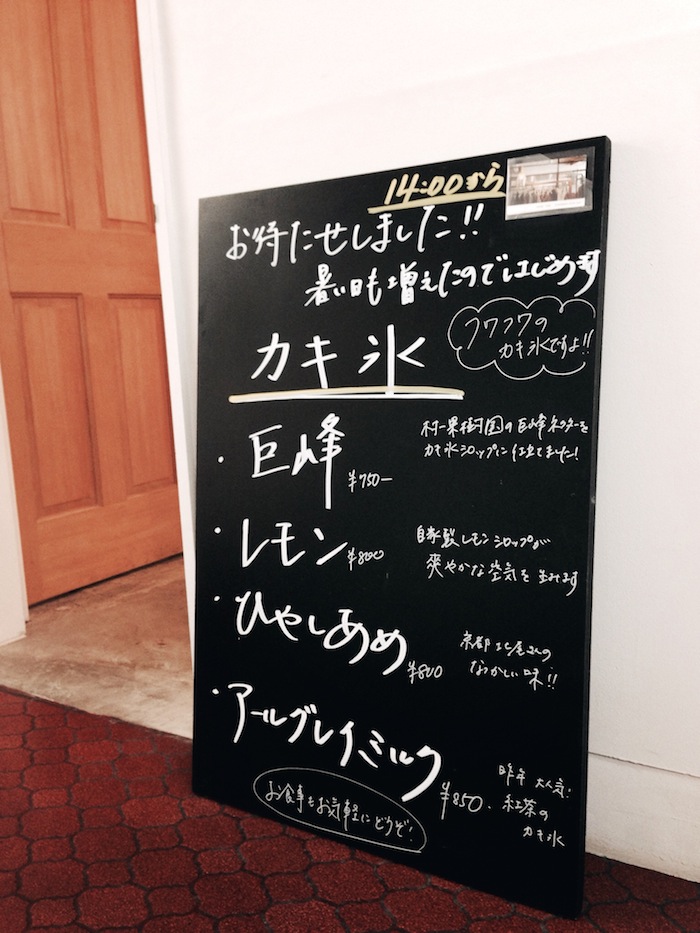 14:00から
お待たせしました!!
暑い日も増えたのではじめます
カキ氷
フワフワの
カキ氷ですよ!!
・巨峰 ¥750-
村一果樹園の巨峰ネクターを
カキ氷シロップに仕立てました!
・レモン ¥800
自家製レモンシロップが
爽やかな空気を生みます
・ひやしあめ ¥800
京都 屋さんの
なつかしい味!!
・アールグレイミルク ¥850.
昨年 大人気!
紅茶の
カキ氷
お食事もお気軽にどうぞ!